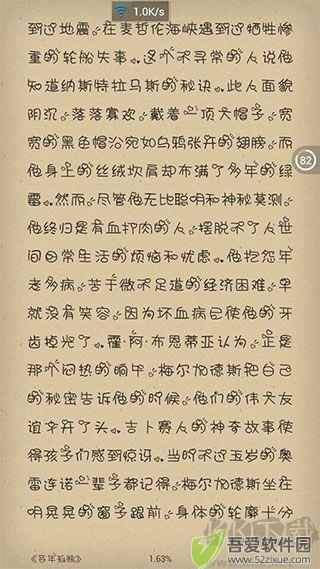 1.0K/s
到过地震。在麦哲伦海峡遇到过牺牲惨
重的轮船失事。这个不寻常的人说他
知道纳斯特拉马斯的秘诀。此人面貌
阴沉，落落寡欢，戴着一顶大帽子，宽
宽的黑色帽沿宛如乌鸦张开的翅膀，而
他身上的丝绒坎肩却布满了多年的绿
霉。然而，尽管他无比聪明和神秘莫测，
他终归是有血打肉的人，摆脱不了人世
间日常生活的烦恼和忧虑。他抱怨年
老多病，苦于微不足道的经济困难，早
就没有笑容，因为坏血病已使他的牙
齿掉光了。霍·阿·布恩蒂亚认为，正是
那个闷热的晌午，梅尔加德斯把自己
的秘密告诉他的时候，他们的伟大友
谊才开了头。吉卜赛人的神奇故事使
得孩子们感到惊讶。当时不过五岁的奥
雷连诺一辈子都记得，梅尔加德斯坐在
明晃晃的窗子跟前，身体的轮廓十分
82
《百年孤独》
1.63%
KK下载
吾爱软件园
www.52zixue.com